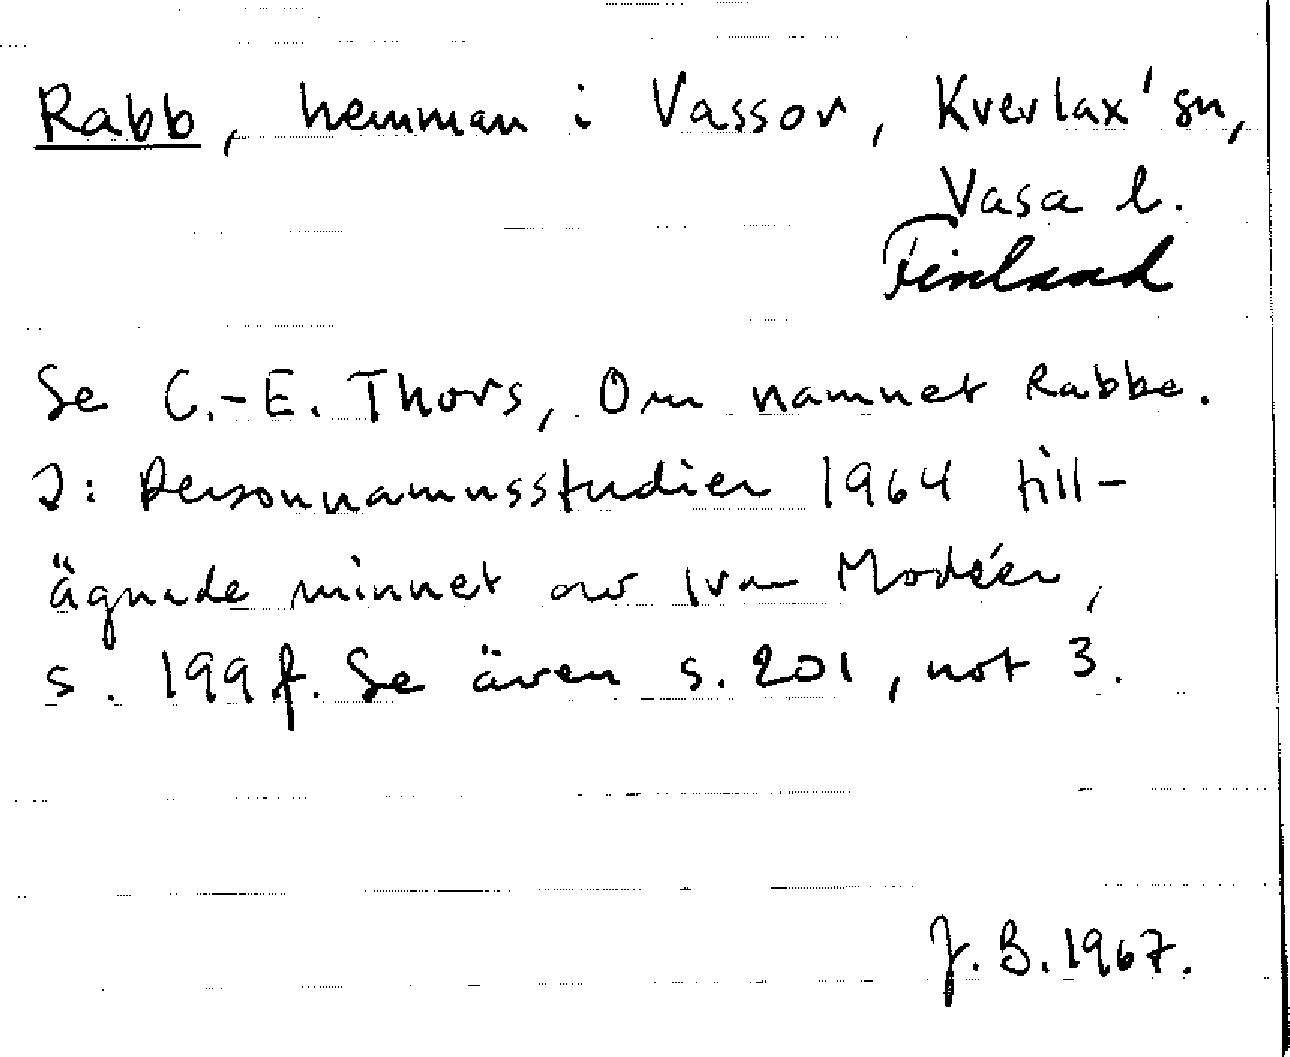 Rabb, hemman i Vassor, Kvevlax' sn,
Vasa l.
Finland
Se C.-E. Thors, Om namnet Rabbe.
I: Personnamnsstudier 1964 till-
ägnade minnet av Ivar Modéer,
s. 199 f. Se även s. 201, not 3.
J. B. 1967.